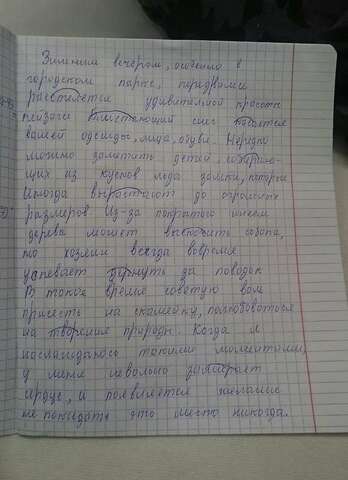 Зимним вечером, особенно в
городском парке, перед вами
расстилается удивительной красоты
пейзаж Блистающий снег касается
вашей одежды, лица, обуви. Нередко
можно заметить детей, собираю-
щих из кусков льда замки, которые
Иногда вырастают до огромных
размеров Из-за покрытого инеем
дерева может выскочить собака,
но хозяин всегда вовремя
успевает дёрнуть за поводок
В такое время советую вам
присесть на скамейку, полюбоваться
на творения природы. Когда я
наслаждаюсь такими моментами,
у меня невольно замирает
сердце, и появляется желание
не покидать это место никогда.